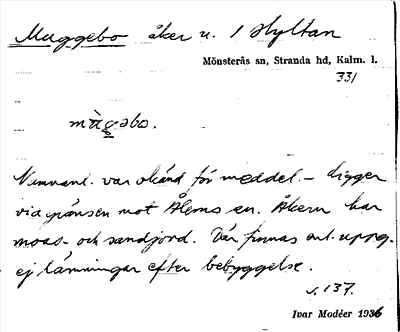 Muggebo åker u. 1 Hyltan
Mönsterås sn, Stranda hd, Kalm. l.
331
mùgəbo.
Namnanl. var okänd för meddel. – Ligger
vid gränsen mot Ålems sn. Åkern har
moas- och sandjord. Där finnas enl. uppg.
ej lämningar efter bebyggelse.
s. 137.
Ivar Modéer 1936